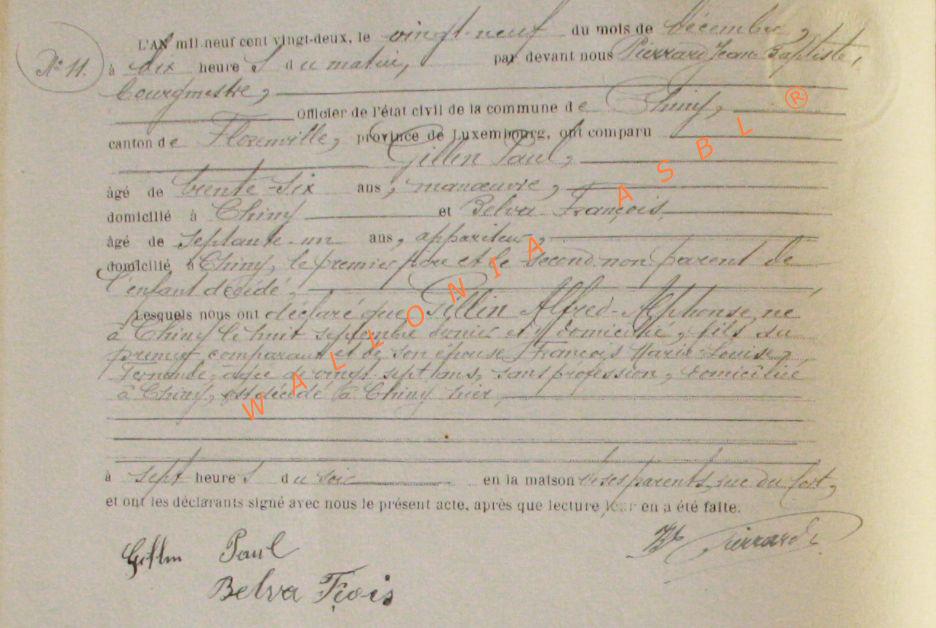 L'AN mil-neuf cent vingt-deux, le vingt-neuf du mois de décembre,
N° 11. à dix heures du matin, par devant nous Pierrard Jean Baptiste,
bourgmestre,
Officier de l'état civil de la commune de Chiny,
canton de Florenville, province de Luxembourg, ont comparu
Gillin Paul,
âgé de trente-six ans, manœuvre,
domicilié à Chiny et Belva François,
âgé de septante-un ans, appariteur,
domicilié à Chiny, le premier père et le second non parent de
l'enfant décédé,
Lesquels nous ont déclaré que Gillin Alfred-Alphonse, né
à Chiny le huit septembre dernier et y domicilié, fils du
premier comparant et de son épouse François Marie Louise,
Fernande, âgée de vingt sept ans, sans profession, domiciliée
à Chiny, est décédé à Chiny hier,
à sept heures du soir en la maison de ses parents, rue du
et ont les déclarants signé avec nous le présent acte, après que lecture leur en a été faite.
Gillin Paul
Pierrard
Belva Fçois
WALLONIA ASBL ®